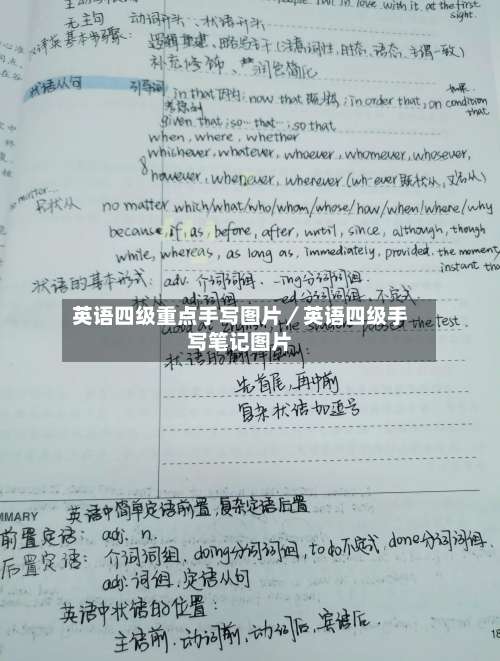 people fall in love with it at the first sight.
无主句 动词开头、状语开头
译英基本步骤: 逻辑重建、略写句子(注意词性、时态、语态、主谓一致)
补充修饰、润色简化
状语从句 引导词 in that 因为; now that 既然; in order that; on condition that
考虑到 如果
given that; so…that…; so that
when, where, whether
whichever, whatever, whoever, whomever, whosever,
however, whenever, wherever (wh-ever 既状从, 又名从)
只状从 no matter which/what/who/whom/whose/how/when/where/why
because, if, as, before, after, until, since, although, though
while, whereas, as long as, immediately, provided, the moment,
instant that
状语的基本形式: adv. 介词词组、-ing分词词组、
状从、adj.词组、-ed分词词组、不定式
the test.
英语四级重点手写图片/英语四级手写笔记图片
先首尾, 再中前
复杂状语加逗号
MMARY
英语中简单定语前置, 复杂定语后置
前置定语: adj. n.
后置定语: 介词词组, doing分词词组, to do不定式, done分词词组,
adj.词组, 定语从句
英语中状语的位置:
主语前, 动词前, 动词后, 宾语后
18